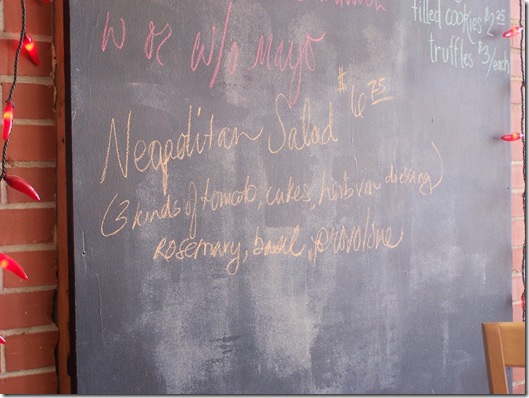 w or w/o mayo
filled cookies $2.25
truffles $3/each
Neopolitan Salad $6.75
(3 kinds of tomato, cukes, herb vin dressing)
rosemary, basil, provolone